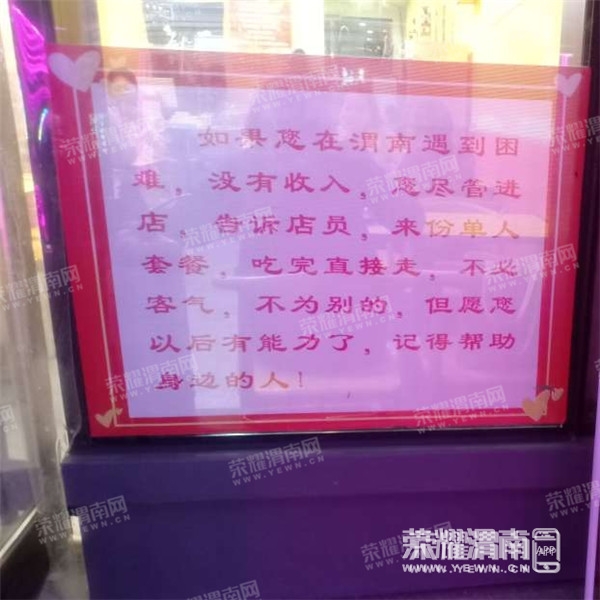 如果您在渭南遇到困
难，没有收入，您尽管进
店，告诉店员，来份单人
套餐，吃完直接走，不必
客气，不为别的，但愿您
以后有能力了，记得帮助
身边的人！
荣耀渭南网
WWW.YEWN.CN
荣耀渭南
WWW.YEWN.CN
APP